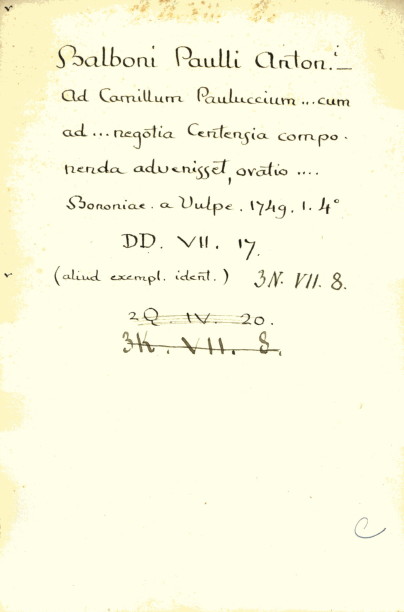 Balboni Paulli Anton.i
Ad Camillum Pauluccium ... cum
ad ... negotia Centensia compo.
nenda advenisset, oratio ....
Bononiae. a Vulpe. 1749. 1. 4°
DD. VII. 17.
(aliud exempl. ident.) 3N. VII. 8.
2Q. IV. 20.
3K. VII. 8.
C